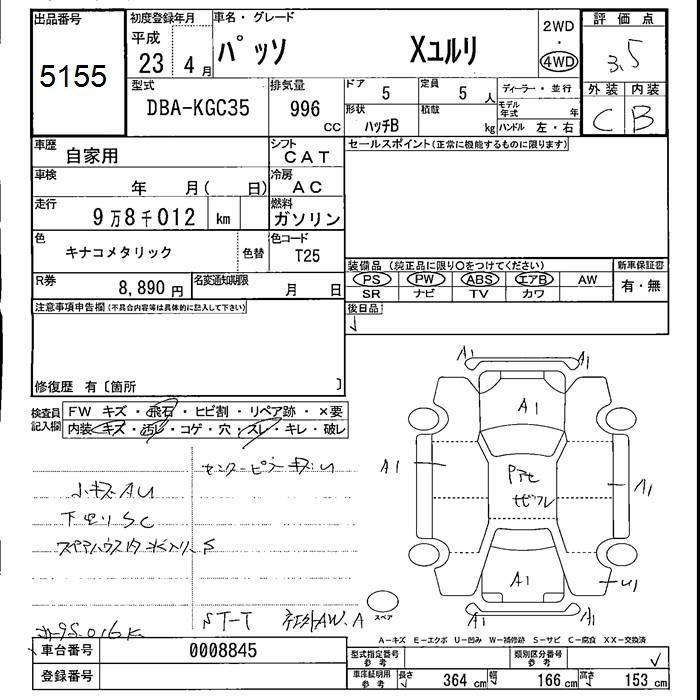 出品番号
5155
初度登録年月
平成
23 4月
車名・グレード
パッソ Xユルリ
2WD
・
4WD
評価点
3.5
外装 内装
C B
型式
DBA-KGC35
排気量
996
CC
ドア 5
定員 5人
形状
ハッチB
積載 kg
ディーラー・並行
モデル年式 年
ハンドル 左・右
車歴 自家用
シフト CAT
車検 年 月( 日)
冷房 AC
走行 9万8千012 km
燃料 ガソリン
色 キナコメタリック
色替
色コード T25
R券 8,890円
名変通知期限 月 日
セールスポイント(正常に機能するものに限ります)
装備品(純正品に限り○をつけてください)
PS PW ABS エアB AW
SR ナビ TV カワ
新車保証書
有・無
後日品
注意事項申告欄(不具合内容等は具体的に記入して下さい)
修復歴 有〔箇所 〕
検査員
記入欄
FW キズ・飛石・ヒビ割・リペア跡・×要
内装・キズ・汚レ・コゲ・穴・スレ・キレ・破レ
センターピラーキズU
小キズAU
下回りSC
S
ST-T 社外AW.A
A1 A1
A1
A1
A1
A1
U1
A1 A1
スペア
A-キズ E-エクボ U-凹み W-補修跡 S-サビ C-腐食 XX-交換済
車台番号 0008845
登録番号
型式指定番号
参考
類別区分番号
参考
車庫証明用
参考
長さ 364 cm 幅 166 cm 高さ 153 cm